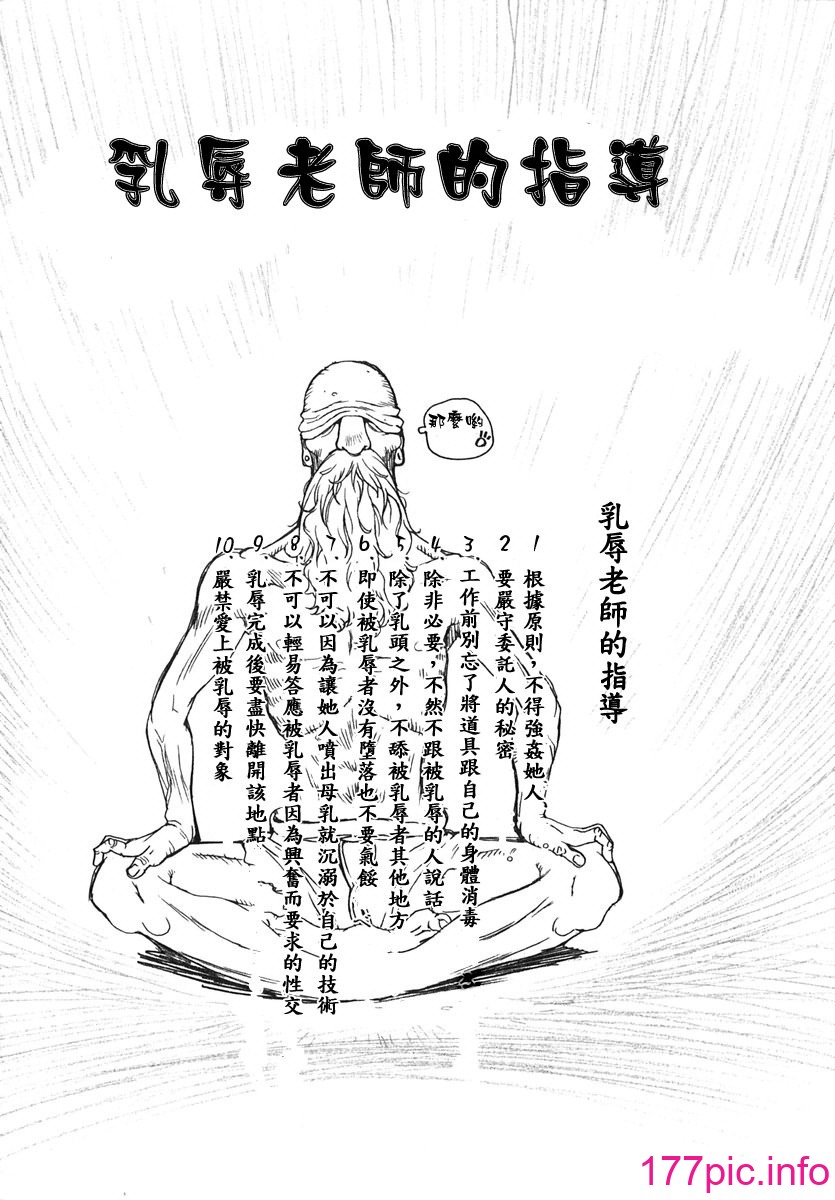 乳辱老師的指導
那麼喲
乳辱老師的指導
1 根據原則，不得強姦她人
2 要嚴守委託人的秘密
3 工作前別忘了將道具跟自己的身體消毒
4 除非必要，不然不跟被乳辱的人說話
5 除了乳頭之外，不舔被乳辱者其他地方
6. 即使被乳辱者沒有墮落也不要氣餒
7 不可以因為讓她人噴出母乳就沉溺於自己的技術
8. 不可以輕易答應被乳辱者因為興奮而要求的性交
9 乳辱完成後要盡快離開該地點
10 嚴禁愛上被乳辱的對象
177pic.info